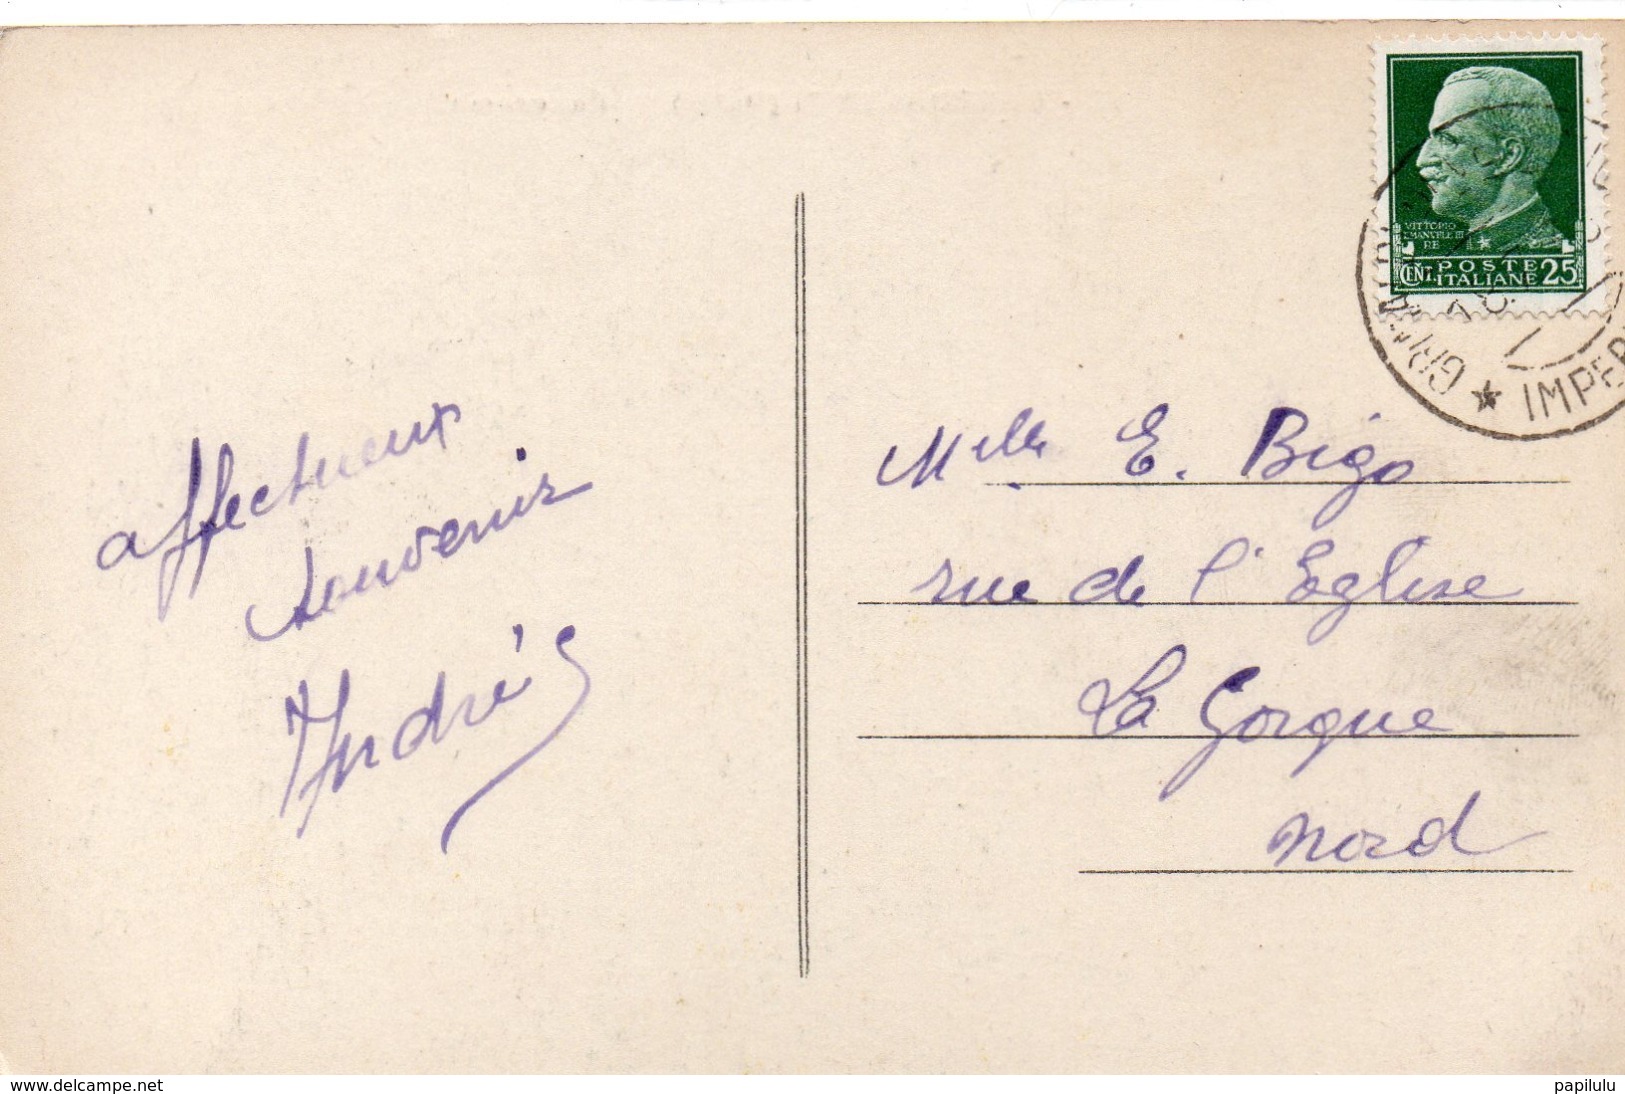 affectueux
souvenir
André
Melle E. Bigo
rue de l'Eglise
La Gorgue
Nord
VITTORIO
EMANVELE III
RE
CENT. POSTE
ITALIANE 25
GRIM
★ IMPER
www.delcampe.net
papilulu